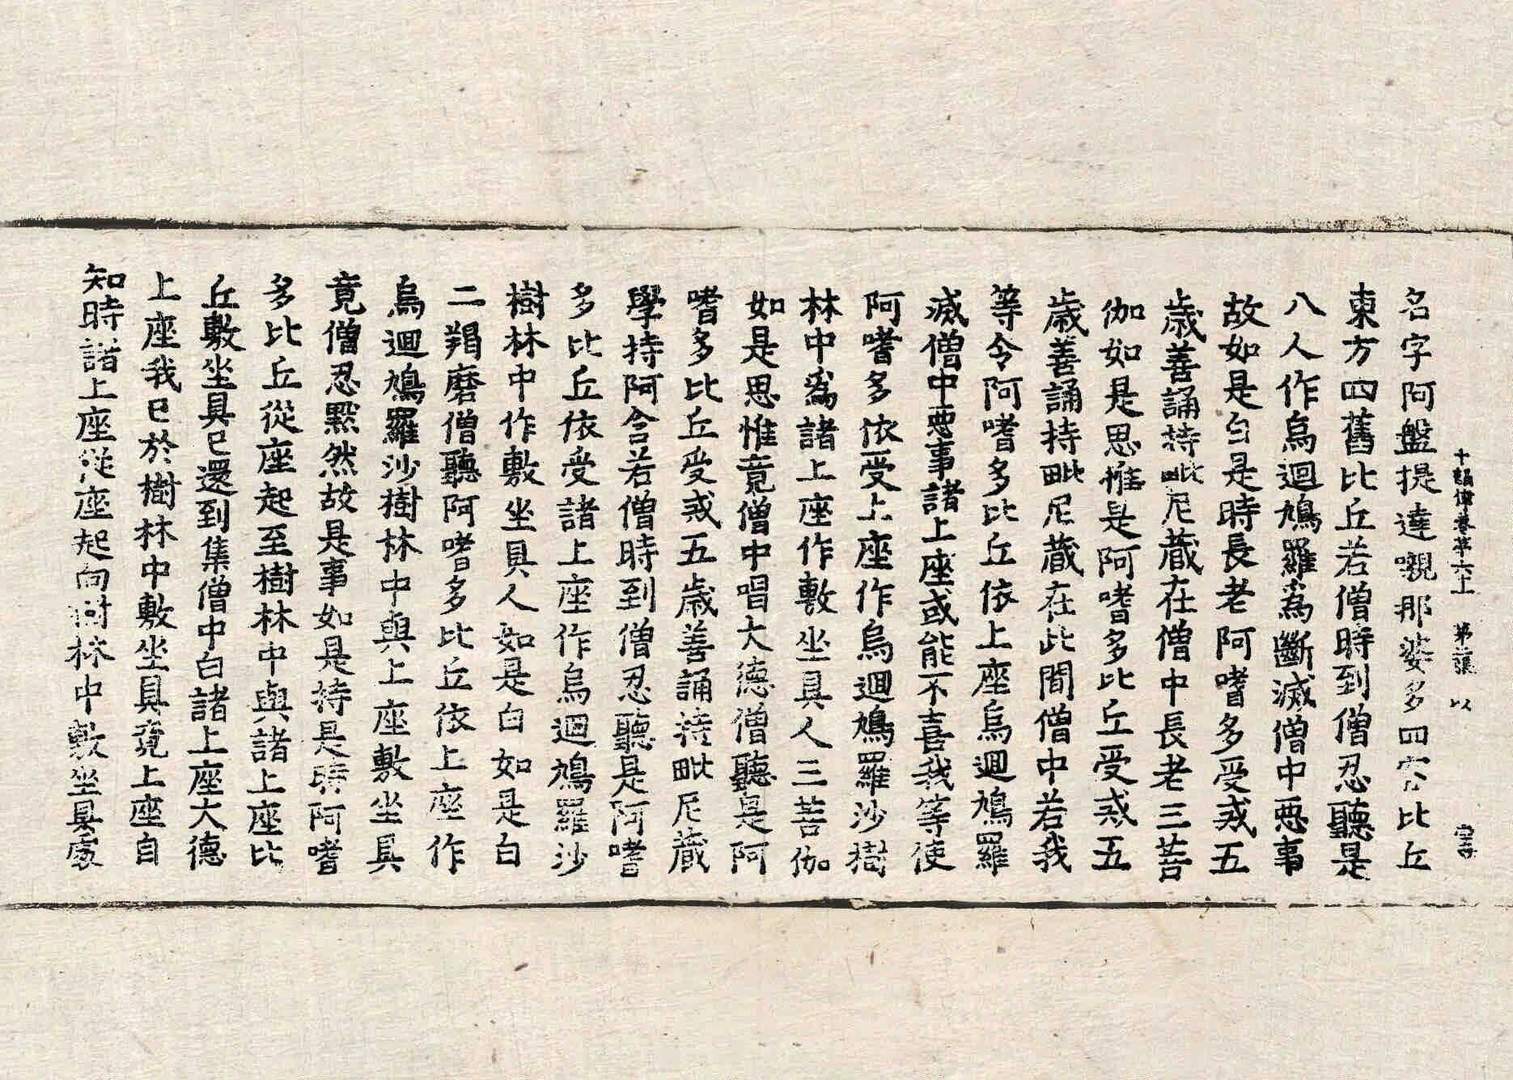 十誦律卷第六上 第
名字阿盤提達嚫那婆多四客比丘
東方四舊比丘若僧時到僧忍聽是
八人作烏迴鳩羅為斷滅僧中惡事
故如是白是時長老阿嗜多受戒五
歲善誦持毗尼藏在僧中長老三菩
伽如是思惟是阿嗜多比丘受戒五
歲善誦持毗尼藏在此間僧中若我
等令阿嗜多比丘依上座烏迴鳩羅
滅僧中惡事諸上座或能不喜我等使
阿嗜多依受上座作烏迴鳩羅沙樹
林中為諸上座作敷坐具人三菩伽
如是思惟竟僧中唱大德僧聽是阿
嗜多比丘受戒五歲善誦持毗尼藏
學持阿含若僧時到僧忍聽是阿嗜
多比丘依受諸上座作烏迴鳩羅沙
樹林中作敷坐具人如是白如是白
二羯磨僧聽阿嗜多比丘依上座作
烏迴鳩羅沙樹林中與上座敷坐具
竟僧忍默然故是事如是持是時阿嗜
多比丘從座起至樹林中與諸上座比
丘敷坐具已還到集僧中白諸上座大德
上座我已於樹林中敷坐具竟上座自
知時諸上座從座起向樹林中敷坐具處